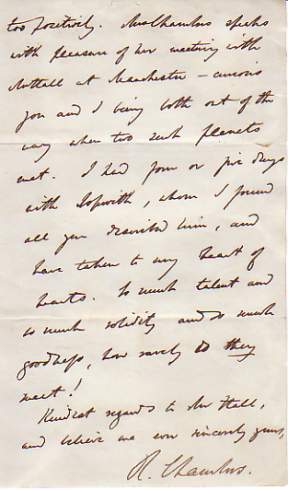 too positively. Mrs Chambers speaks
with pleasure of her meeting with
at Manchester – curious
you and I being both out of the
way when two such planets
met. I had four or five days
with Ipswith, whom I found
all you described him, and
have taken to my heart of
hearts. So much talent and
so much solidity and so much
goodness, how rarely do they
meet!
Kindest regards to Mr Hall,
and believe me ever sincerely yours,
R. Chambers.